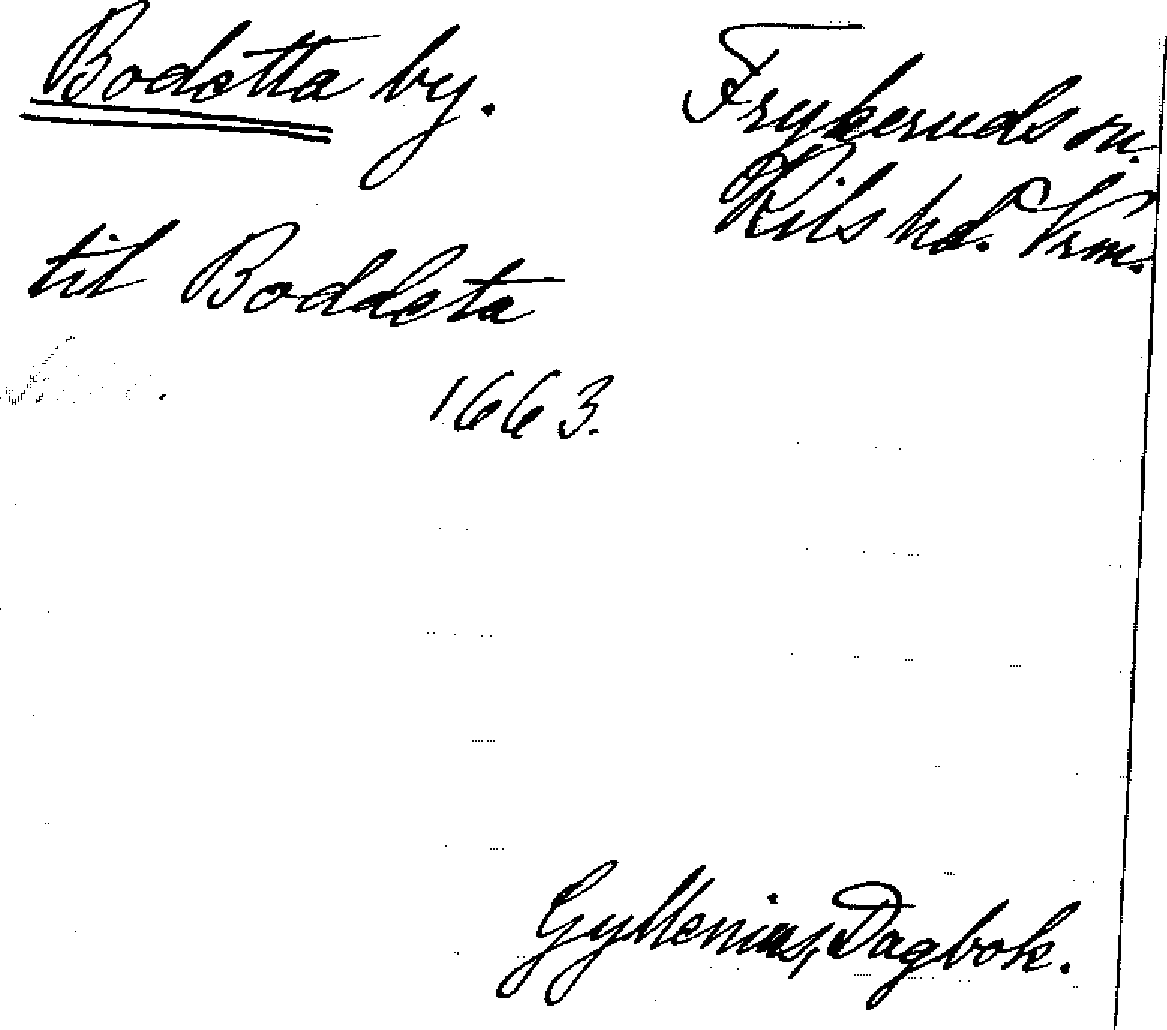 Bodetta by.
Frykeruds sn.
Kils hd. Vrm.
til Boddeta
1663.
Gyllenius, Dagbok.